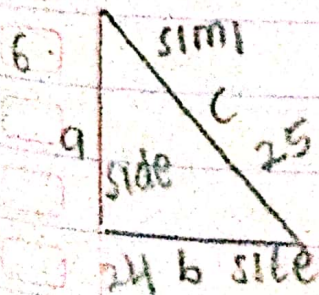 6.
simi
c
25
a
side
24 b